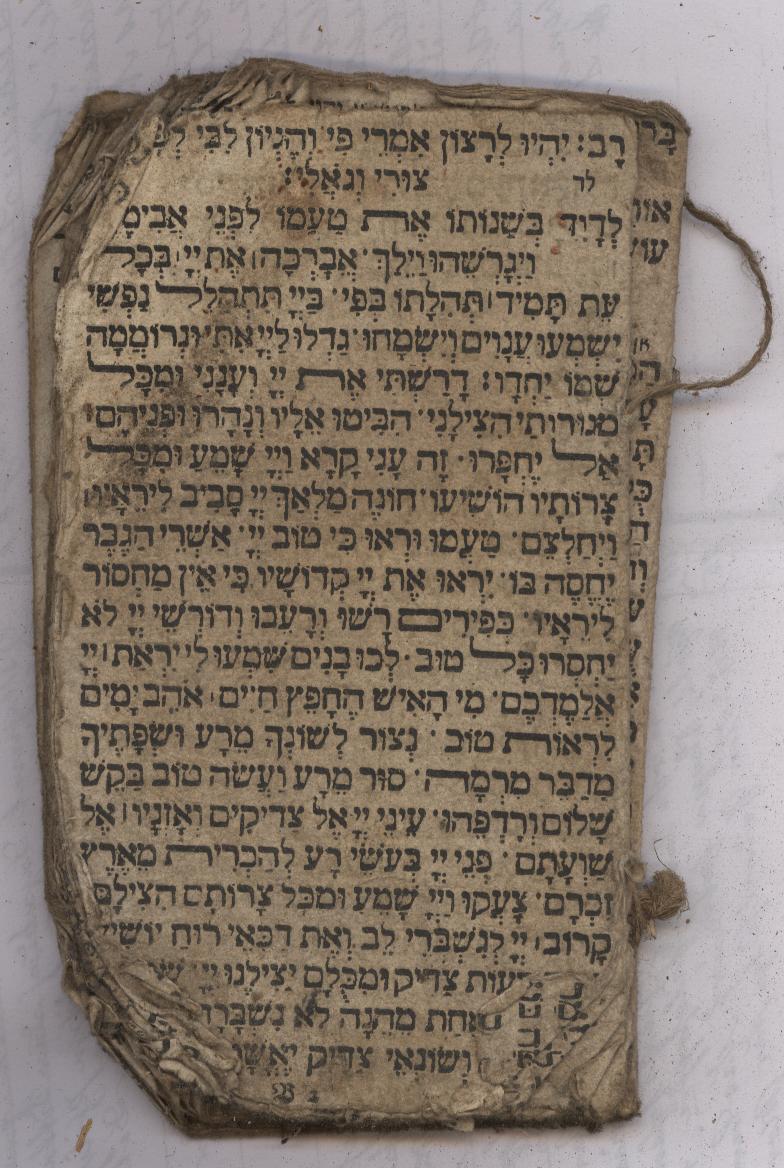 רָב: יִהְיוּ לְרָצוֹן אִמְרֵי פִי וְהֶגְיוֹן לִבִּי
צוּרִי וְגֹאֲלִי:
לד
לְדָוִד בְּשַׁנּוֹתוֹ אֶת טַעְמוֹ לִפְנֵי
וַיְגָרְשֵׁהוּ וַיֵּלַךְ אֲבָרְכָה אֶת יְיָ בְּכָל
עֵת תָּמִיד תְּהִלָּתוֹ בְּפִי בַּיְיָ תִּתְהַלֵּל נַפְשִׁי
יִשְׁמְעוּ עֲנָוִים וְיִשְׂמָחוּ גַּדְּלוּ לַיְיָ אִתִּי וּנְרוֹמְמָה
שְׁמוֹ יַחְדָּו: דָּרַשְׁתִּי אֶת יְיָ וְעָנָנִי וּמִכָּל
מְגוּרוֹתַי הִצִּילָנִי הִבִּיטוּ אֵלָיו וְנָהָרוּ וּפְנֵיהֶם
אַל יֶחְפָּרוּ זֶה עָנִי קָרָא וַיְיָ שָׁמֵעַ וּמִכָּל
צָרוֹתָיו הוֹשִׁיעוֹ חוֹנֶה מַלְאַךְ יְיָ סָבִיב לִירֵאָיו
וַיְחַלְּצֵם טַעֲמוּ וּרְאוּ כִּי טוֹב יְיָ אַשְׁרֵי הַגֶּבֶר
יֶחֱסֶה בּוֹ יְראוּ אֶת יְיָ קְדוֹשָׁיו כִּי אֵין מַחְסוֹר
לִירֵאָיו כְּפִירִים רָשׁוּ וְרָעֵבוּ וְדוֹרְשֵׁי יְיָ לֹא
יַחְסְרוּ כָּל טוֹב לְכוּ בָנִים שִׁמְעוּ לִי יִרְאַת יְיָ
אֲלַמֶּדְכֶם מִי הָאִישׁ הֶחָפֵץ חַיִּים אֹהֵב יָמִים
לִרְאוֹת טוֹב נְצוֹר לְשׁוֹנְךָ מֵרָע וּשְׂפָתֶיךָ
מִדַּבֵּר מִרְמָה סוּר מֵרָע וַעֲשֵׂה טוֹב בַּקֵּשׁ
שָׁלוֹם וְרָדְפֵהוּ עֵינֵי יְיָ אֶל צַדִּיקִים וְאָזְנָיו אֶל
שַׁוְעָתָם פְּנֵי יְיָ בְּעֹשֵׂי רָע לְהַכְרִית מֵאֶרֶץ
זִכְרָם צָעֲקוּ וַיְיָ שָׁמֵעַ וּמִכָּל צָרוֹתָם הִצִּילָם
קָרוֹב יְיָ לְנִשְׁבְּרֵי לֵב וְאֶת דַּכְּאֵי רוּחַ
רָעוֹת צַדִּיק וּמִכֻּלָּם יַצִּילֶנּוּ יְיָ
אַחַת מֵהֵנָּה לֹא נִשְׁבָּרָה
וְשׂוֹנְאֵי צַדִּיק